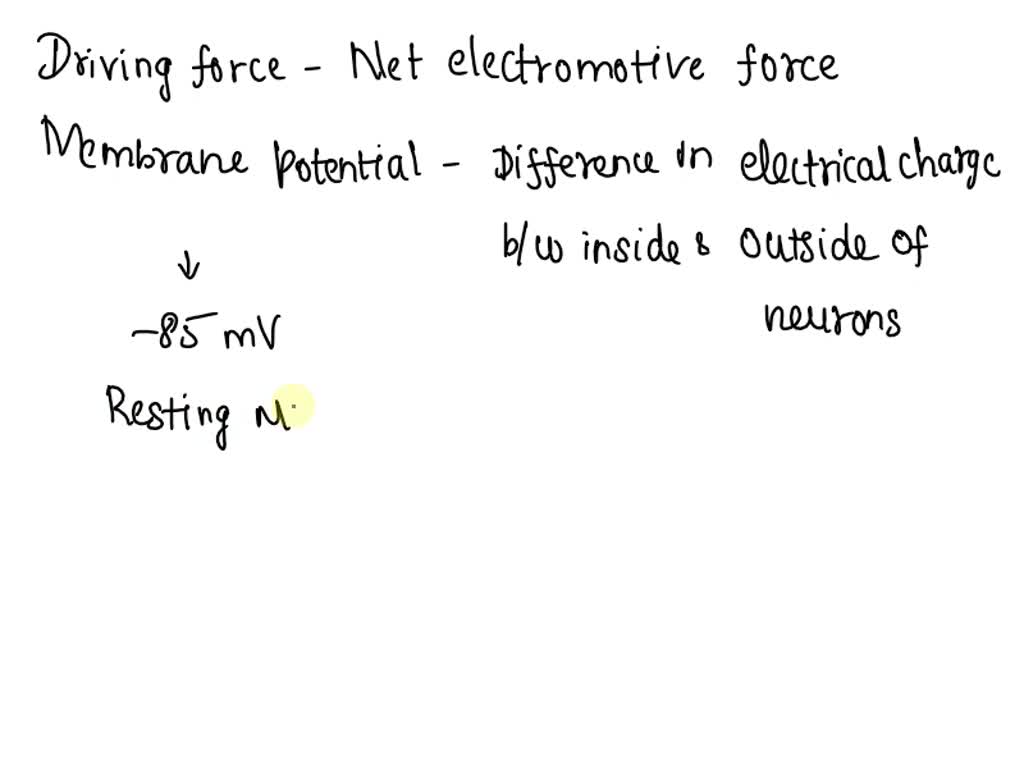 Driving force - Net electromotive force
Membrane potential - Difference in electrical charge
b/w inside & outside of
neurons
↓
-85 mV
Resting M